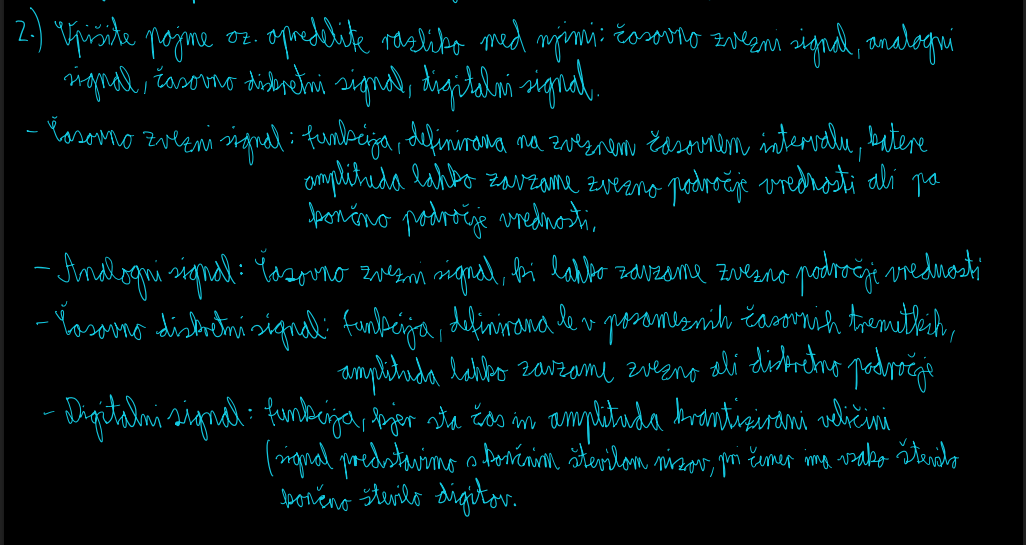 2.) Vpišite pojme oz. opredelite razliko med njimi: časovno zvezni signal, analogni
signal, časovno diskretni signal, digitalni signal.
- Časovno zvezni signal: funkcija, definirana na zveznem časovnem intervalu, katere
amplituda lahko zavzame zvezno področje vrednosti ali pa
končno področje vrednosti.
- Analogni signal: Časovno zvezni signal, ki lahko zavzame zvezno področje vrednosti
- Časovno diskretni signal: funkcija, definirana le v posameznih časovnih trenutkih,
amplituda lahko zavzame zvezno ali diskretno področje
- Digitalni signal: funkcija, kjer sta čas in amplituda kvantizirani veličini
(signal predstavimo s končnim številom nizov, pri čemer ima vsako število
končno število digitov.